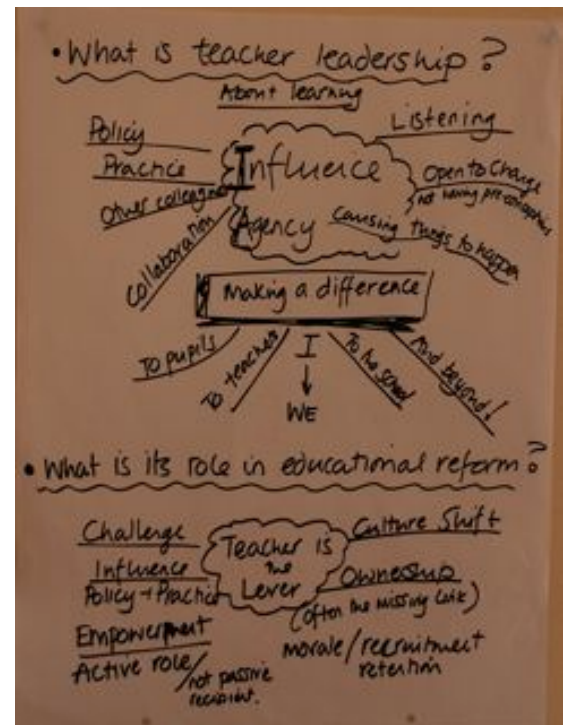 • What is teacher leadership?
About learning
Policy
Practice
Other colleagues
Collaboration
Influence
Agency
Listening
Open to Change
not having preconceptions
Causing things to happen
Making a difference
To pupils
To teachers
I
WE
To the school
And beyond!
• What is its role in educational reform?
Challenge
Influence
Policy → Practice
Empowerment
Active role/
not passive
recipient.
Teacher is
the
Lever
Culture Shift
Ownership
(often the missing link)
morale/recruitment
retention